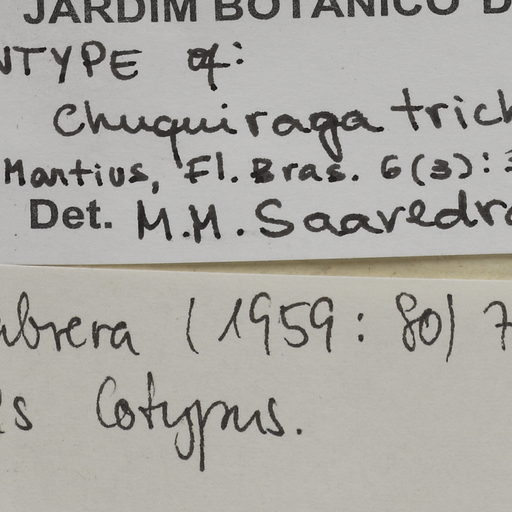 JARDIM BOTÂNICO D
NTYPE of:
Chuquiraga trich
Martius, Fl. Bras. 6(3):3
Det. M.M. Saavedra
abrera (1959: 80) 7
es Cotypus.